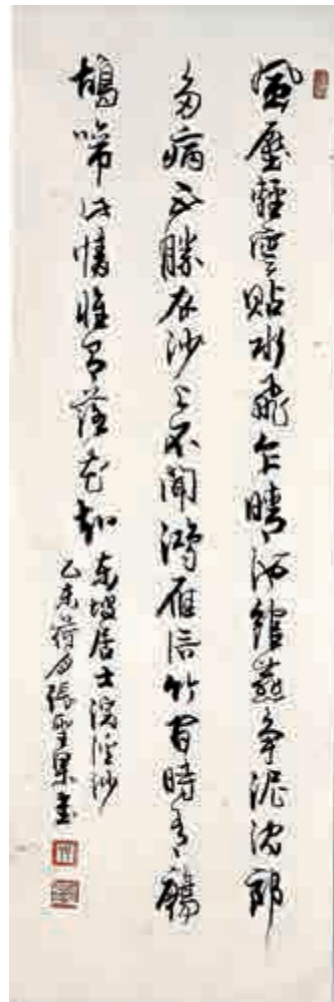 風壓輕雲貼水飛乍晴池館燕爭泥沈郎
多病不勝衣沙上不聞鴻雁信竹間時有鷓
鴣啼此情惟有落花知
東坡居士浣溪沙
乙未荷月張聖書